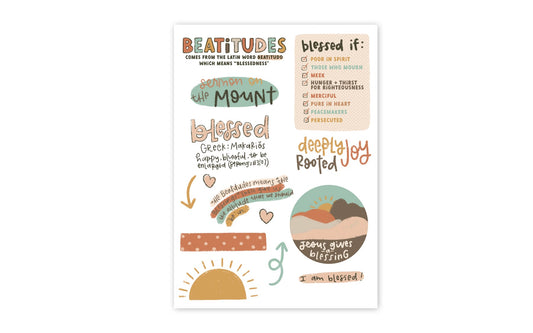 BEATiTUDES
COMES FROM THE LATIN WORD BEATITUDO
WHICH MEANS "BLESSEDNESS"
sermon on
the MOUNT
blessed
Greek: Makariós
happy, blissful, to be
enlarged (Strong's
the Beatitudes means
the attitude that we should
be in
blessed if:
POOR IN SPIRIT
THOSE WHO MOURN
MEEK
HUNGER + THIRST
FOR RIGHTEOUSNESS
MERCIFUL
PURE IN HEART
PEACEMAKERS
PERSECUTED
deeply
Rooted Joy
Jesus gives
a
blessing
I am blessed!